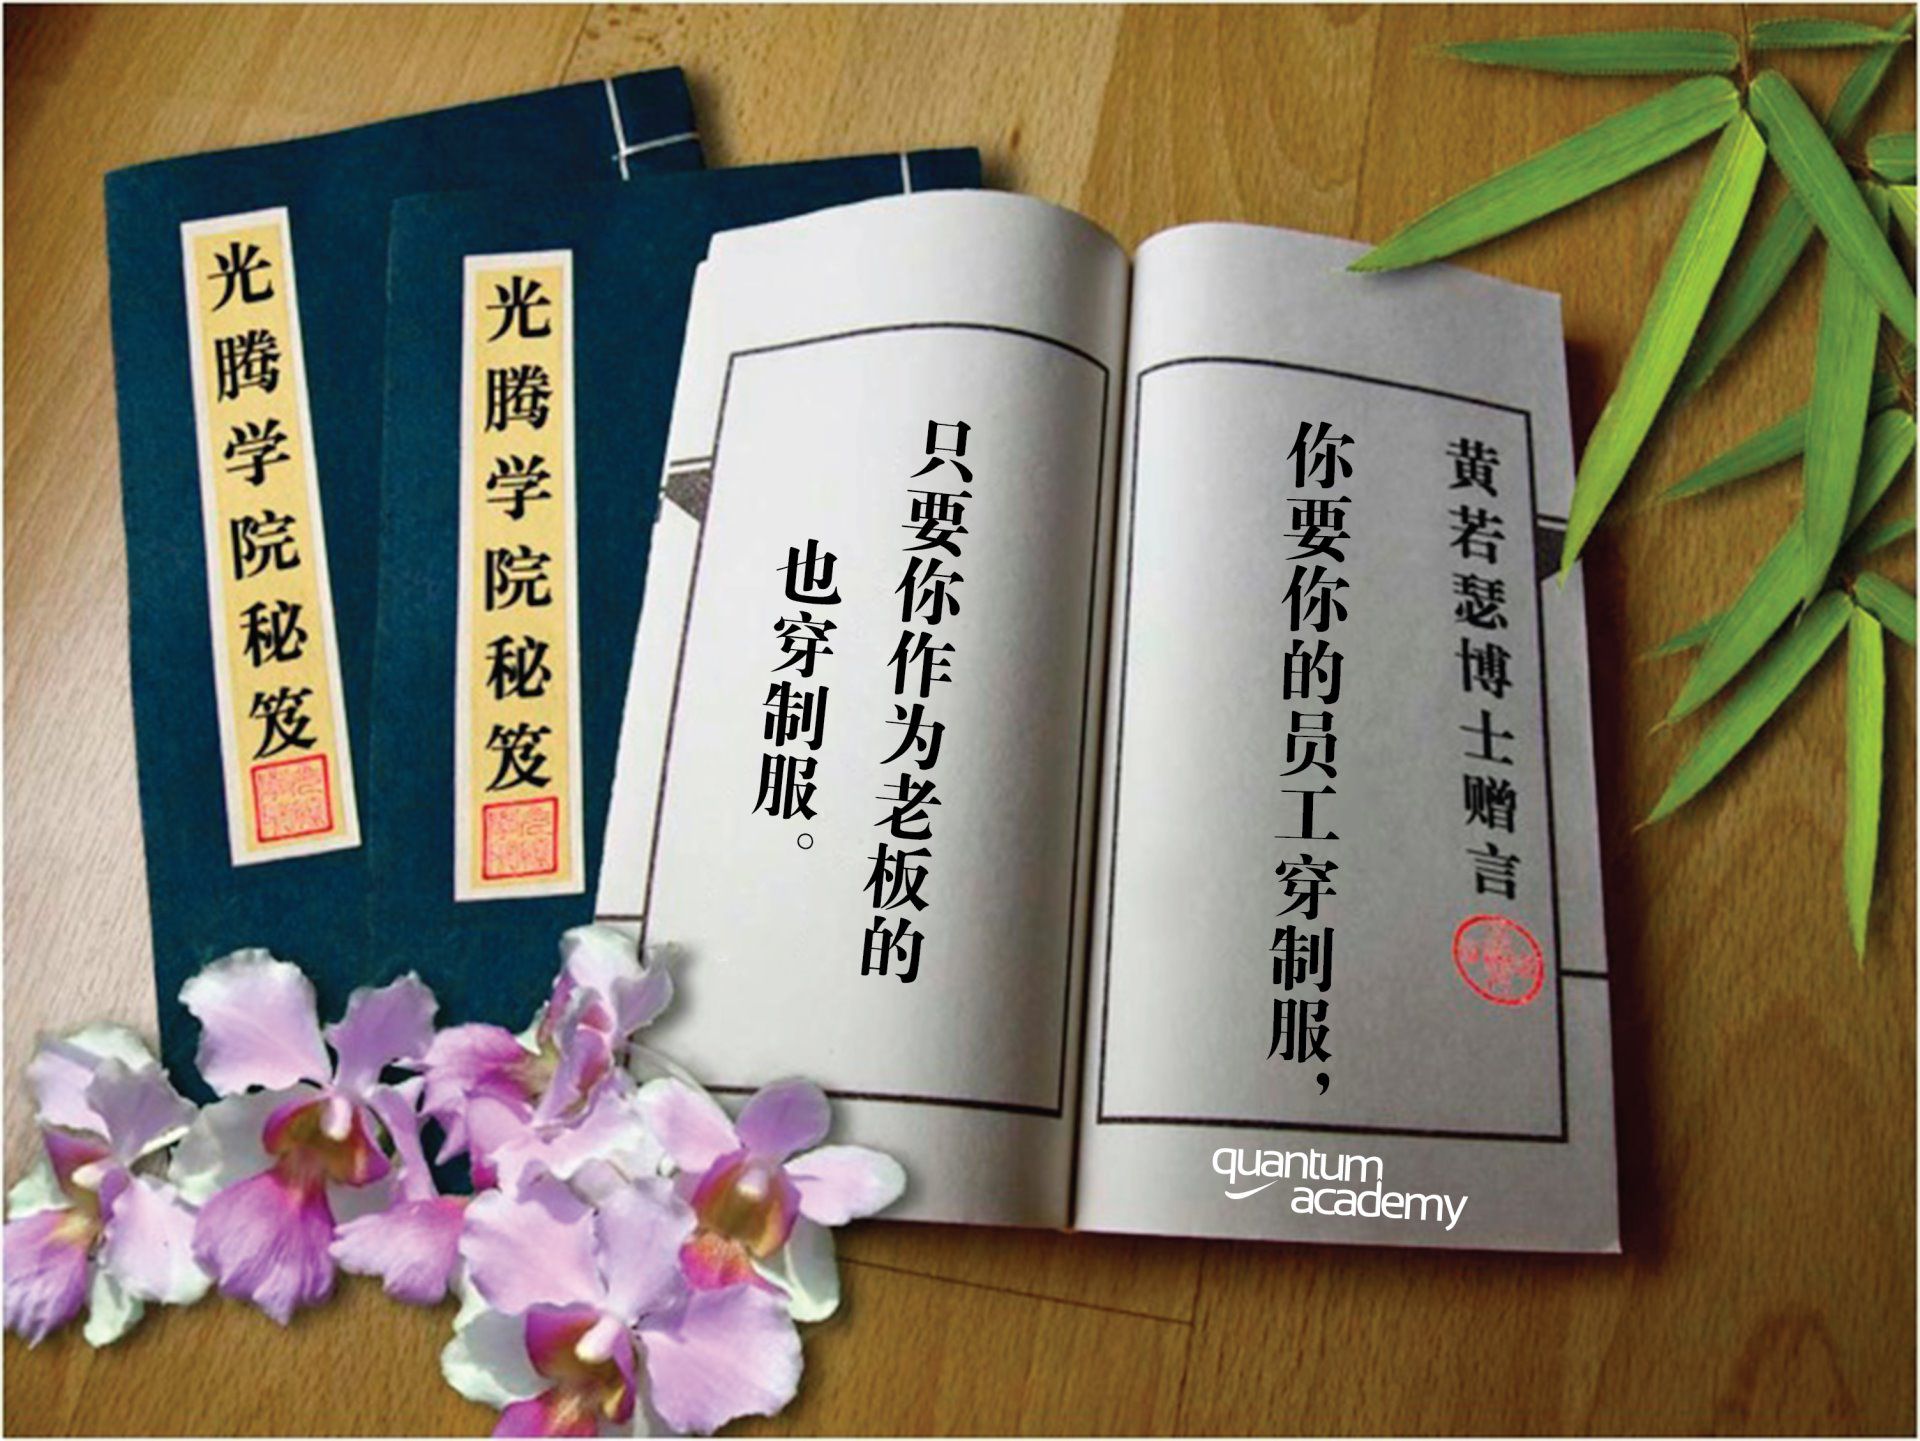 光腾学院秘笈
光腾学院秘笈
黄若瑟博士赠言
你要你的员工穿制服，
只要你作为老板的
也穿制服。
quantum
academy